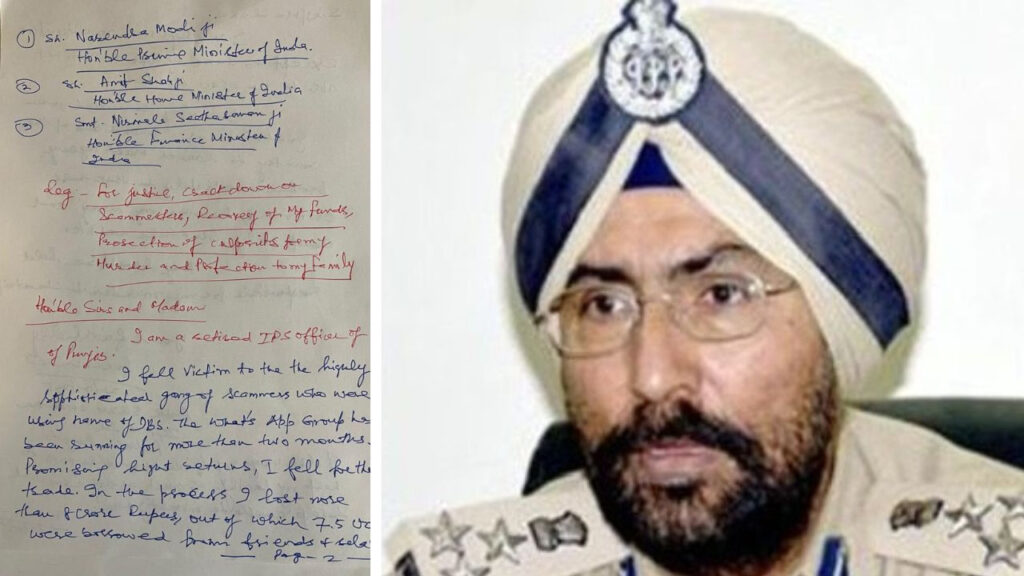 ① Sh. Narendra Modi ji
Hon'ble Prime Minister of India.
② Sh. Amit Shah ji
Hon'ble Home Minister of India
③ Smt. Nirmala Seetharaman ji
Hon'ble Finance Minister of
India
Reg - For justice, crackdown on
Scammesters, Recovery of My funds,
Prosection of culprits for my
Murder and Protection to my Family
Hon'ble Sirs and Madam
I am a retired IPS officer of
of Punjab.
I fell victim to the the highly
Sophisticated gang of scammers who were
using name of DBS. The What's App Group has
been running for more than two months.
Promising hight returns, I fell for the
trade. In the process I lost more
than 8 crore Rupees, out of which 7.5
were borrowed from friends &
Page - 2